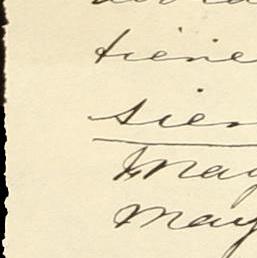 tiene
sien
May
May